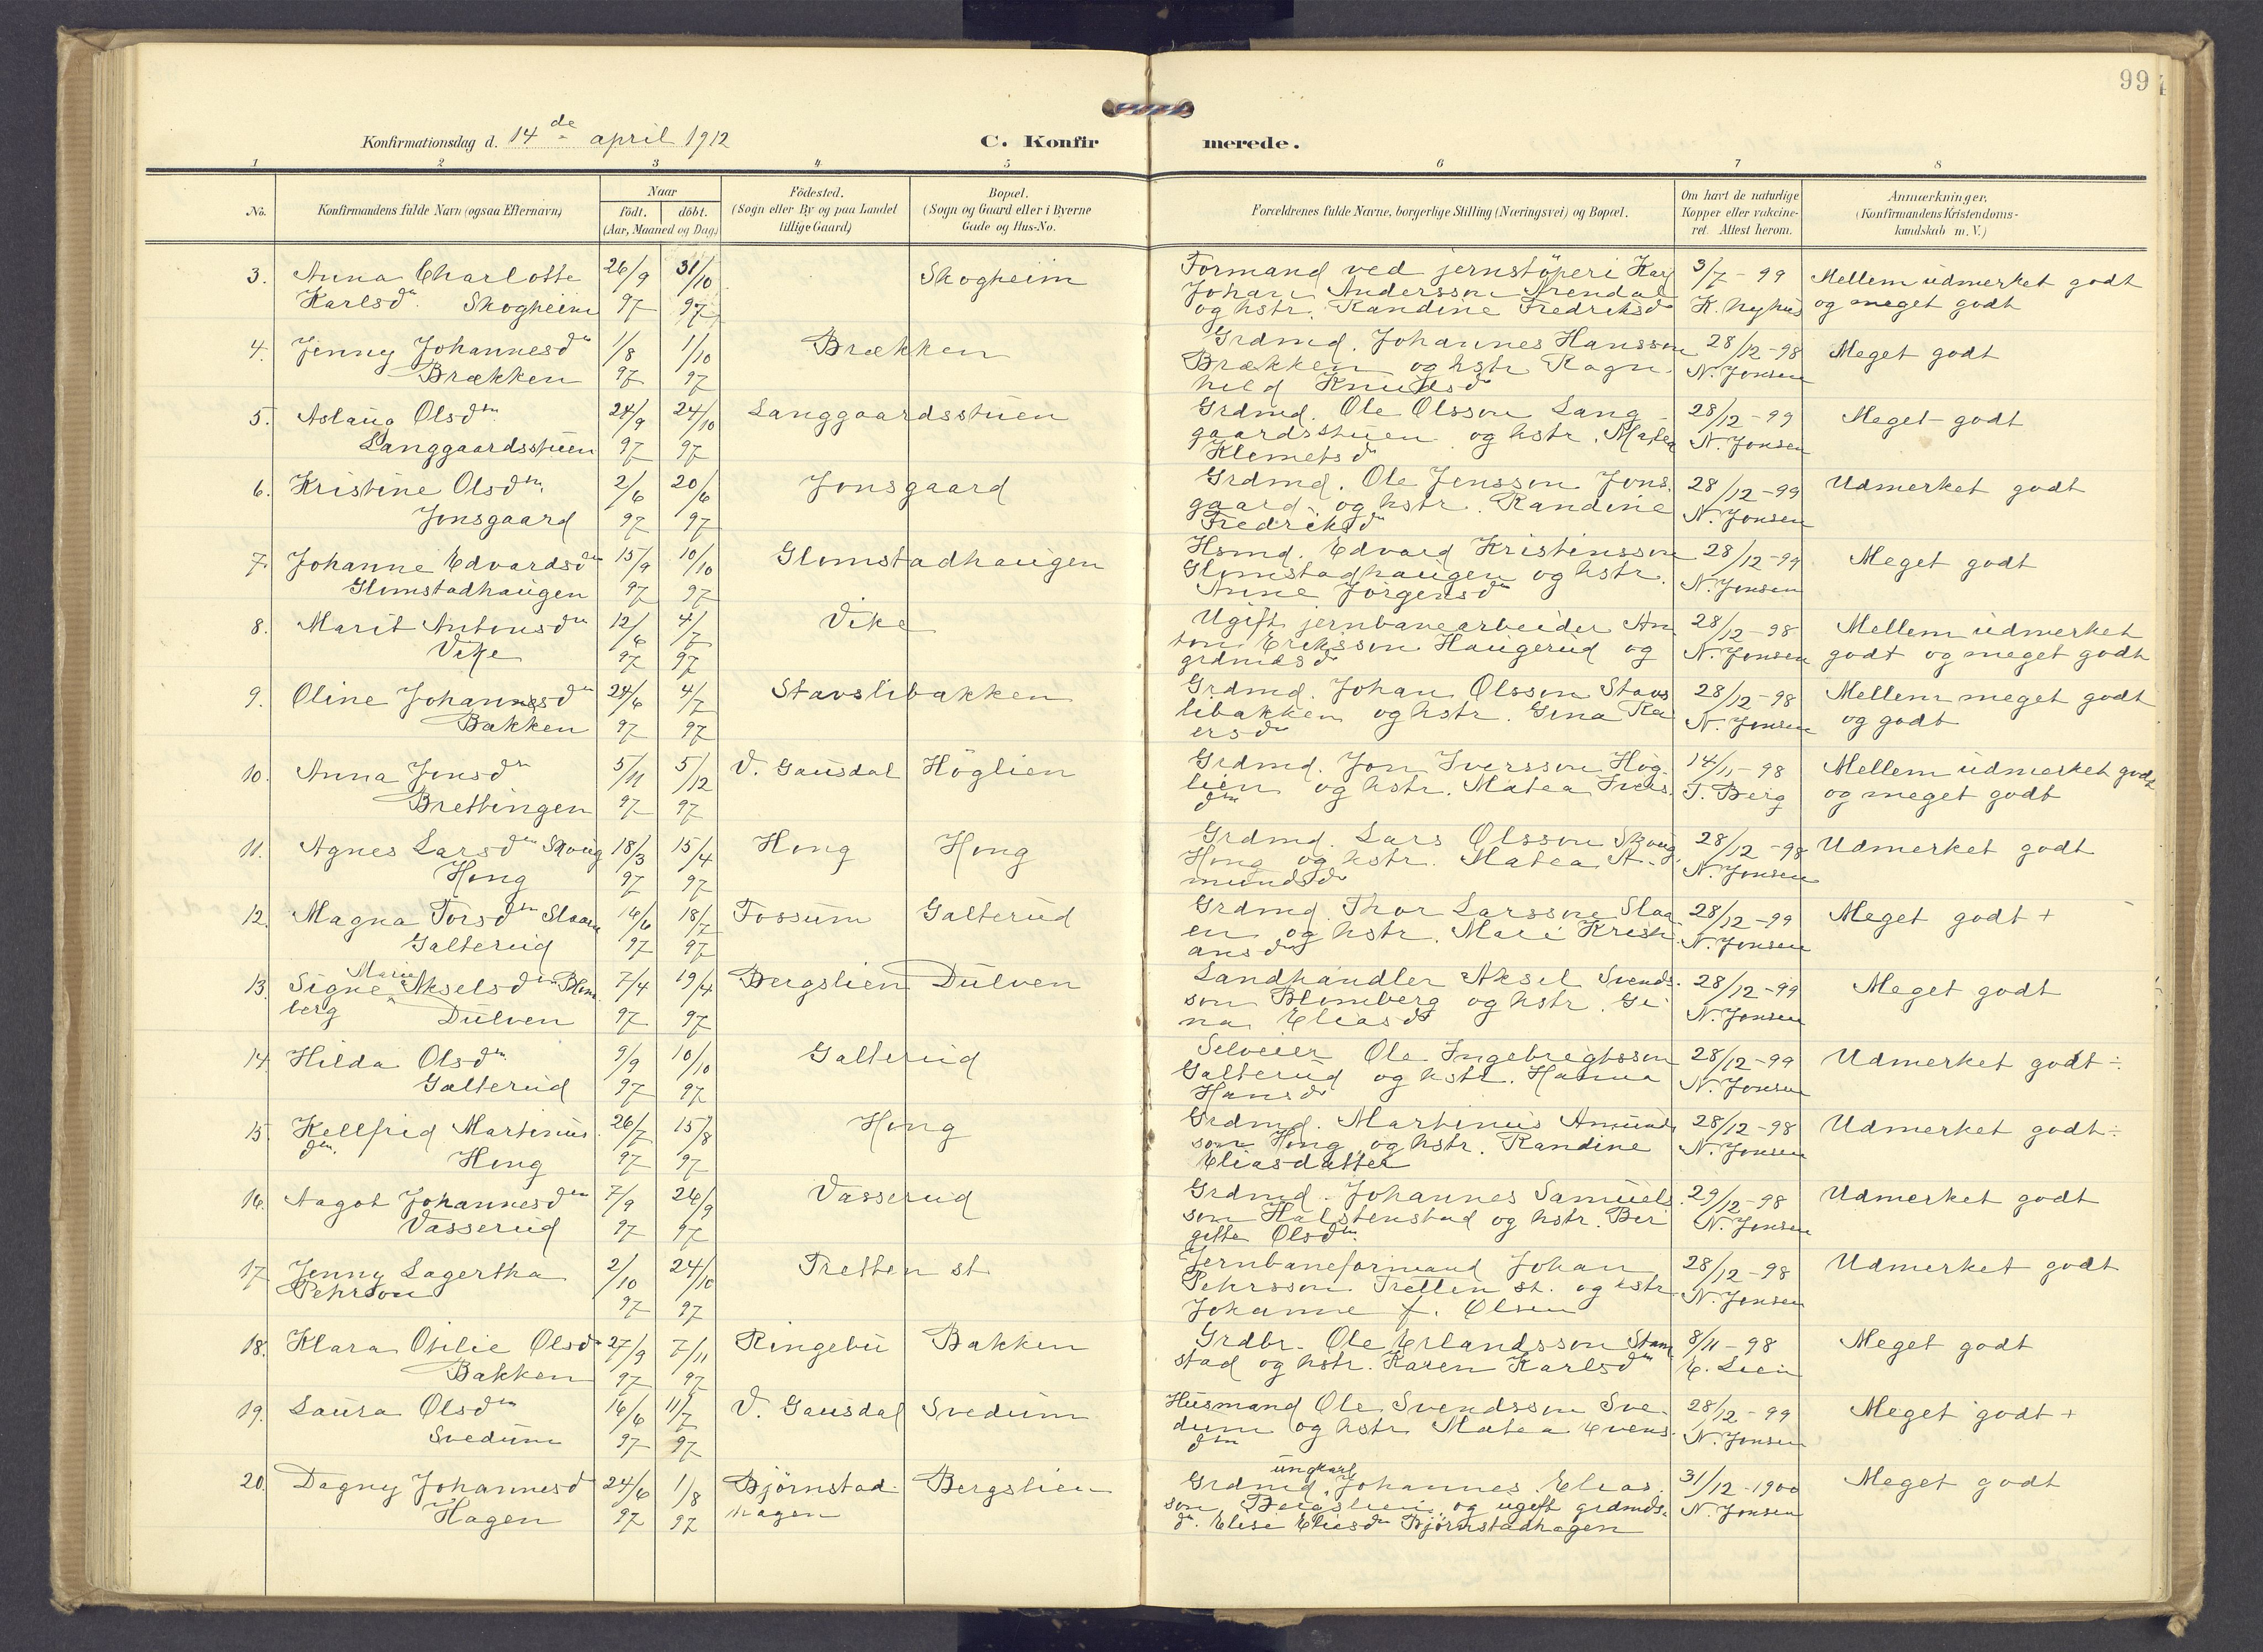 99
Konfirmationsdag d. 14de april 1912
C. Konfir merede.
1 2 3 4 5 6 7 8
No.
Konfirmandens fulde Navn (ogsaa Efternavn)
Naar
födt. döbt.
(Aar, Maaned og Dag)
Födested.
(Sogn eller By og paa Landet
tillige Gaard)
Bopæl.
(Sogn og Gaard eller i Byerne
Gade og Hus-No.
Forældrenes fulde Navne, borgerlige Stilling (Næringsvei) og Bopæl.
Om havt de naturlige
Kopper eller vakcine-
ret. Attest herom.
Anmærkninger,
(Konfirmandens Kristendoms-
kundskab m. V.)
3. Anna Charlotte 26/9 31/10 Skogheim Formand ved jernstöperi Karl 3/7 - 99 Mellem udmerket godt
Karlsdn. Skogheim 97 97 Johan Andersson Arendal K. Nyhus og meget godt
og hstr. Randine Fredriksdn
4. Jenny Johannesdn 1/8 1/10 Brækken Grdmd. Johannes Hansson 28/12 - 98 Meget godt
Brækken 97 97 Brækken og hstr Ragn- N. Jonsen
hild Knudsdn
5. Aslaug Olsdn 24/9 24/10 Langgaardsstuen Grdmd. Ole Olsson Lang- 28/12 - 99 Meget godt
Langgaardsstuen 97 97 gaardsstuen og hstr. Matea N. Jonsen
Klemetsdn
6. Kristine Olsdn. 2/6 20/6 Jonsgaard Grdmd. Ole Jonsson Jons- 28/12 - 99 Udmerket godt
Jonsgaard 97 97 gaard og hstr. Randine N. Jonsen
Fredriksdn
7. Johanne Edvardsdn 15/9 10/10 Glomstadhaugen Hsmd. Edvard Kristinsson 28/12 - 99 Meget godt
Glomstadhaugen 97 97 Glomstadhaugen og hstr. N. Jonsen
Anne Jörgensdn
8. Marit Antonsdn 12/6 4/7 Vike Ugift jernbanearbeider An- 28/12 - 98 Mellem udmerket
Vike 97 97 ton Eriksson Haugerud og N. Jonsen godt og meget godt
grdmdsdn
9. Oline Johannesdn 24/6 4/7 Stavslibakken Grdmd. Johan Olsson Stavs 28/12 - 98 Mellem meget godt
Bakken 97 97 libakken og hstr. Gina N. Jonsen og godt
ersdn
10. Anna Jonsdn 5/11 5/12 V. Gausdal Höglien Grdmd. Jon Iversson Hög- 14/11 - 98 Mellem udmerket godt
Brettingen 97 97 lien og hstr. Matea Ivers- T. Berg og meget godt
dtn
11. Agnes Larsdn Skoug 18/3 15/4 Hong Hong Grdmd. Lars Olsson Skoug 28/12 - 98 Udmerket godt
Hong 97 97 Hong og hstr. Matea A- N. Jonsen
mundsdn
12. Magna Torsdn Slaaen 16/6 18/7 Fossum Galterud Grdmd. Thor Larsson Slaa- 28/12 - 99 Meget godt +
Galterud 97 97 en og hstr. Mari Kristi- N. Jonsen
ansdn
13. Signe Marie Akselsdn Blom 7/4 19/4 Bergslien Dulven Landhandler Aksel Svends- 28/12 - 99 Meget godt
berg Dulven 97 97 son Blomberg og hstr. Gi- N. Jonsen
na Eliasdn
14. Hilda Olsdn. 9/9 10/10 Galterud Selveier Ole Ingebregtsson 28/12 - 99 Udmerket godt ÷
Galterud 97 97 Galterud og hstr. Hanna N. Jonsen
Hansdn
15. Kellfrid Martinus- 26/7 15/8 Hong Grdmd. Martinus Amund- 28/12 - 98 Udmerket godt ÷
dtn. Hong 97 97 son Hong og hstr. Randine N. Jonsen
Eliasdatter
16. Aagot Johannesdn 7/9 26/9 Vasserud Grdmd. Johannes Samuels- 29/12 - 98 Udmerket godt
Vasserud 97 97 son Halstenstad og hstr. Ber N. Jonsen
gitte Olsdn.
17. Jenny Lagertha 2/10 24/10 Tretten st. Jernbaneformand Johan 28/12 - 98 Udmerket godt
Pehrson 97 97 Pehrsson Tretten st. og hstr. N. Jonsen
Johanne f. Olsen
18. Klara Otilie Olsd 27/9 7/11 Ringebu Bakken Grdbr. Ole Erlandsson Stam 8/11 - 98 Meget godt
Bakken 97 97 stad og hstr. Karen Karlsdn E. Lien
19. Laura Olsdn 16/6 11/7 V. Gausdal Svedum Husmand Ole Svendsson Sve- 28/12 - 99 Meget godt +
Svedum 97 97 dum og hstr Matea Evens- N. Jonsen
dtn
20. Dagny Johannesd 24/6 1/8 Björnstad- Bergslien Grdmd. ungkarl Johannes Elias- 31/12 - 1900 Meget godt
Hagen 97 97 hagen son Bergslien og ugift grdmds- N. Jonsen
dn. Elise Eliasdn Björnstadhagen